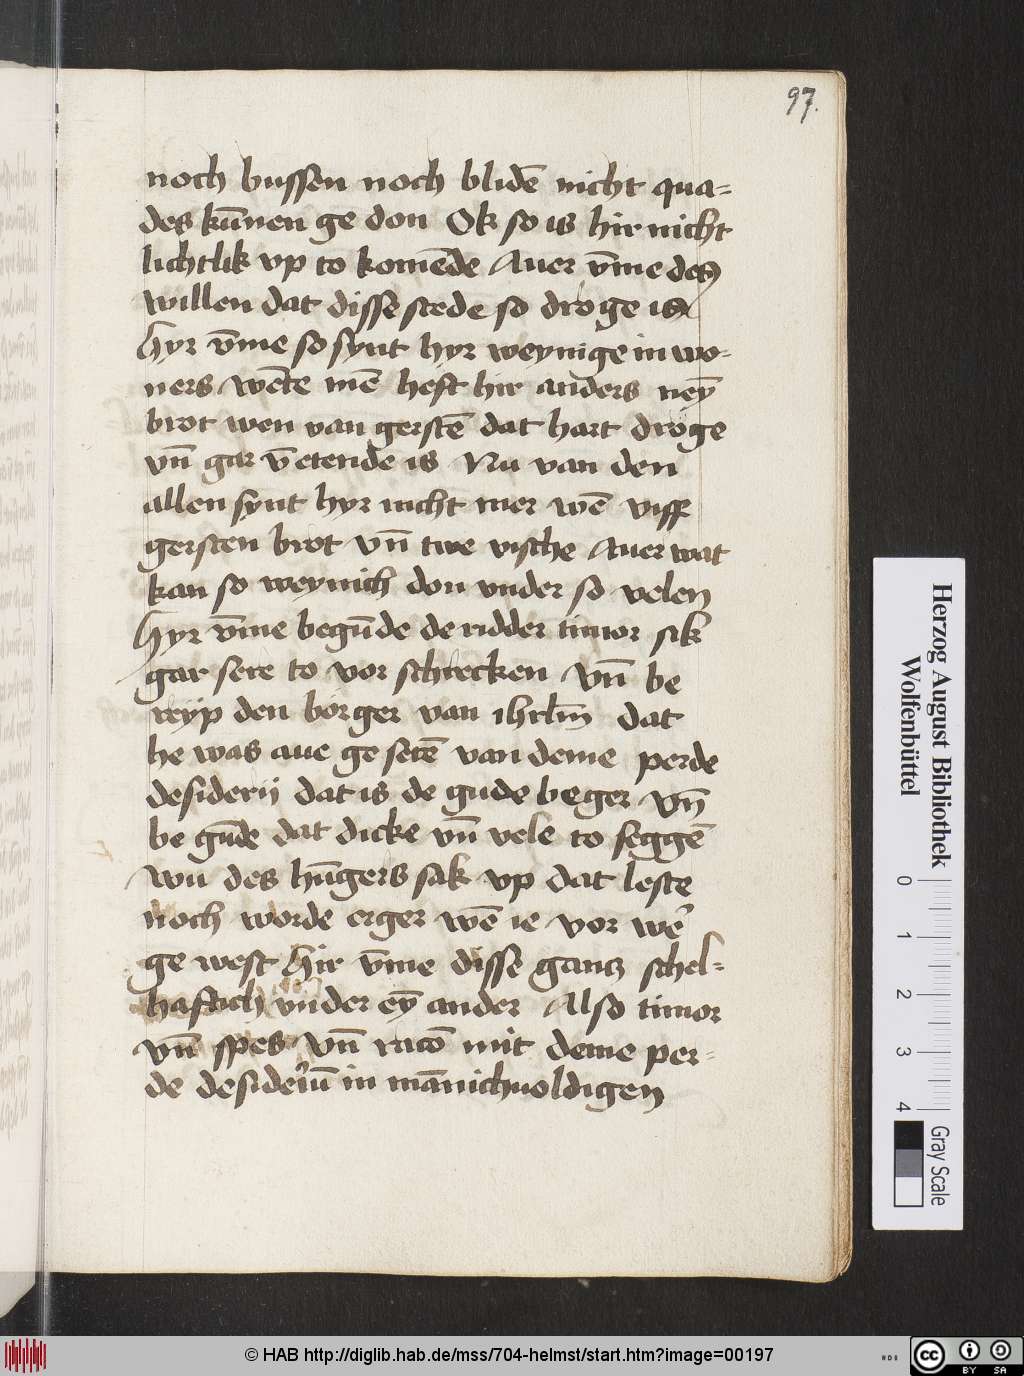 97.
noch bussen noch blidē nicht qua=
des kūnen ge don Ok so is hir nicht
lichtlik vp to komēde Auer vm̄e des
willen dat disse stede so droge is
hyr vm̄e so synt hyr weynige in wo=
ners wēte mē heft hir anders neȳ
brot wen van gerstē dat hart droge
vn̄ gar v̄etende is Nu van den
allen synt hyr nicht mer wē viff
gersten brot vn̄ twe vische Auer wat
kan so weynich don vnder so velen
hyr vm̄e begūde de ridder timor sik
gar sere to vor schrecken vn̄ be
reyp den borger van ihrlm̄ dat
he was aue ge setē van deme perde
desiderij dat is de gude beger vn̄
be gūde dat dicke vn̄ vele to seggē
wu des hūgers sak vp dat leste
noch worde erger wē ie vor we᷒
gē west hir vm̄e disse gancz schel=
haftich vnder eȳ ander Also timor
vn̄ spes vn̄ racō mit deme per=
de desideriū in mānichuoldigen
Herzog August Bibliothek
Wolfenbüttel
0 1 2 3 4
Gray Scale
© HAB http://diglib.hab.de/mss/704-helmst/start.htm?image=00197
cc BY SA